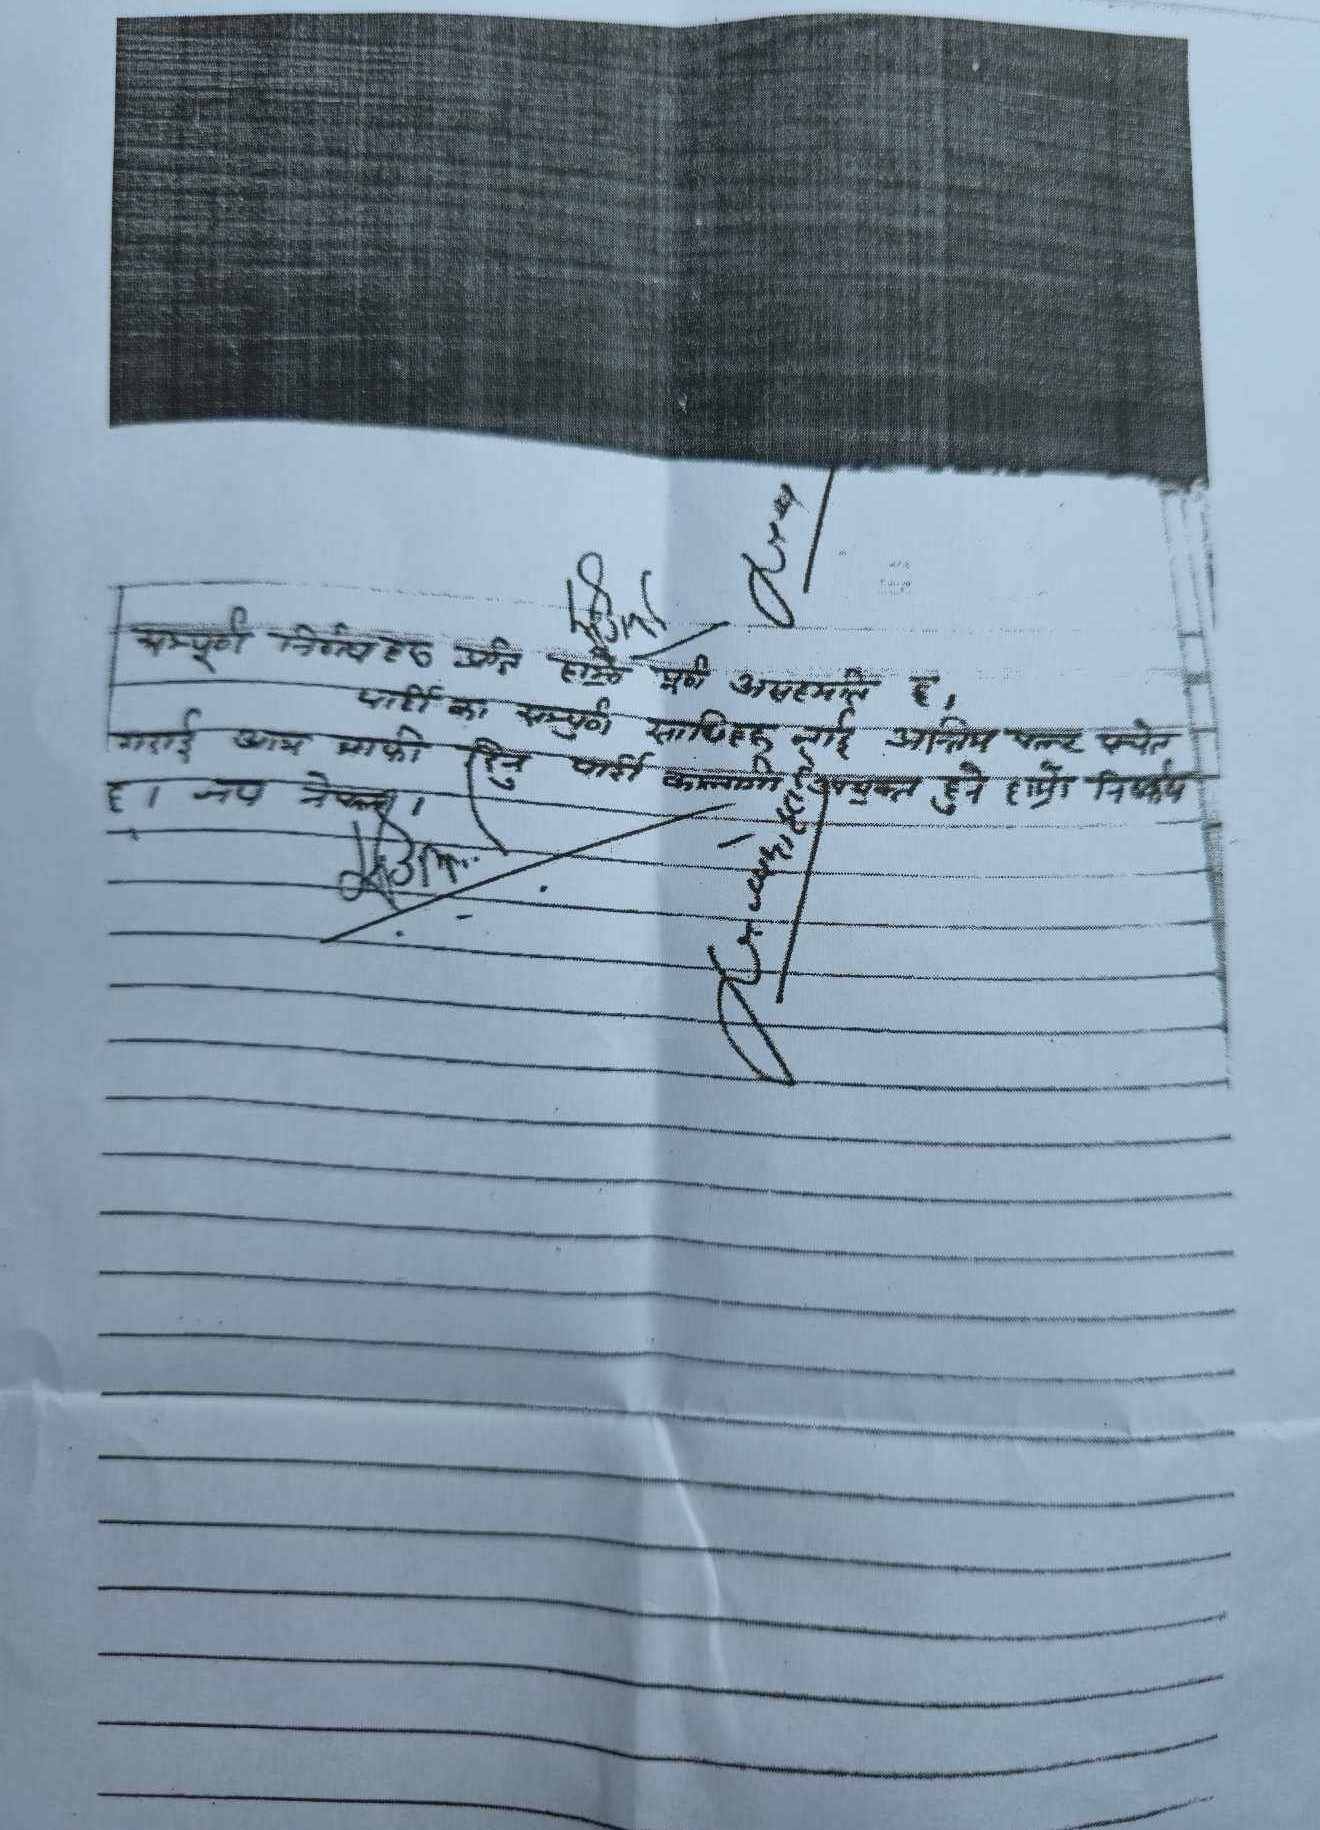 सम्पूर्ण निर्णयहरु प्रति हाम्रो पूर्ण असहमति छ,
पार्टी का सम्पुर्ण साथिहरु लाई अन्तिम पल्ट सचेत
गराई आम माफी दिनु पार्टी कालागी उपयुक्त हुने हाम्रो निष्कर्ष
छ। जय नेपाल।